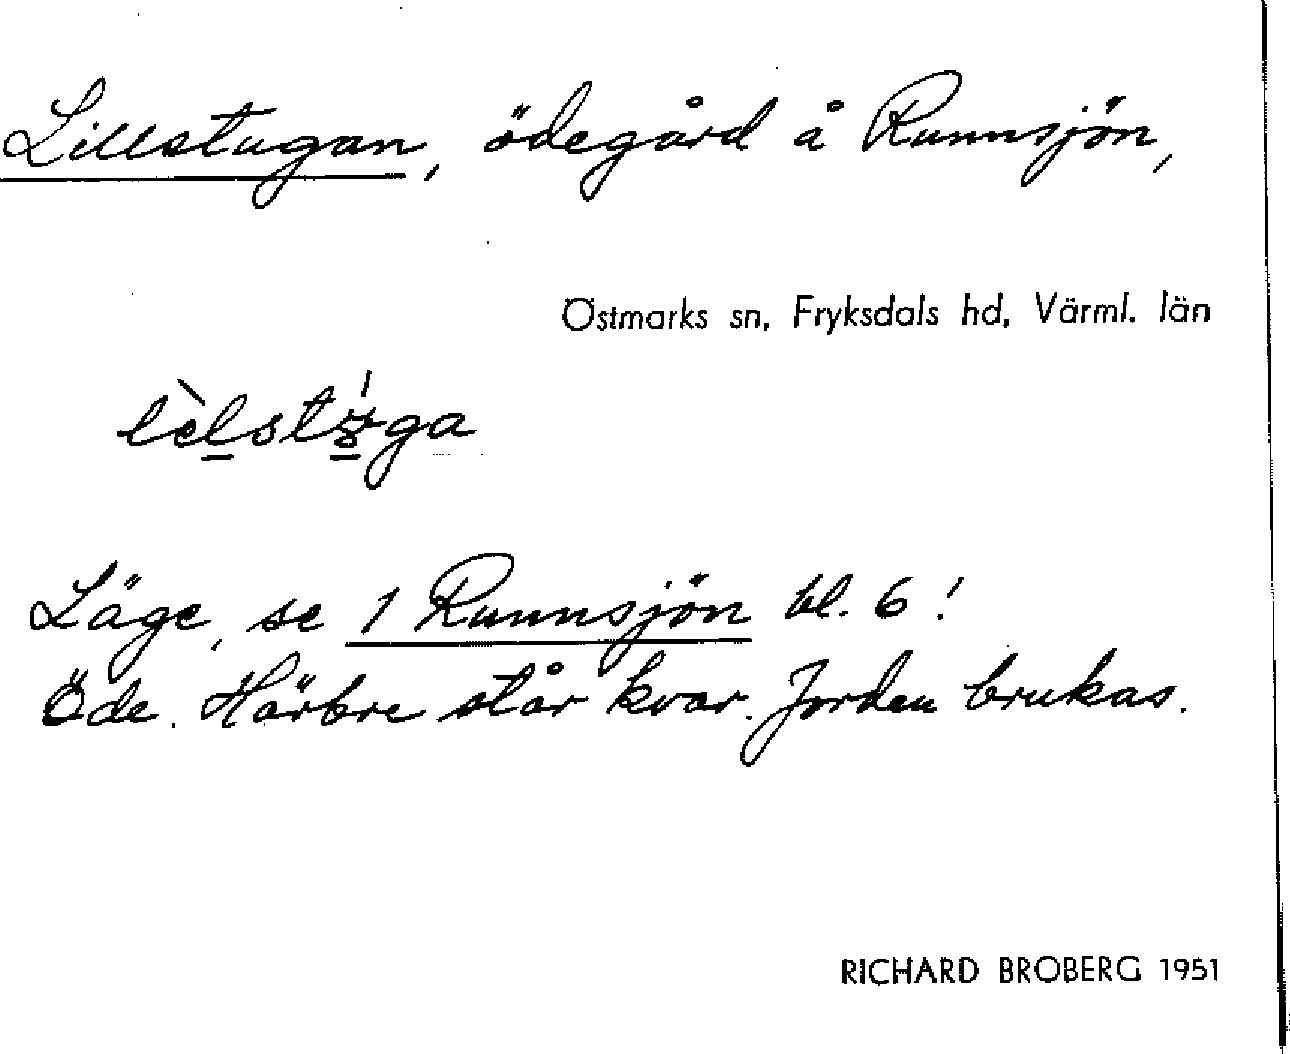 Lillstugan, ödegård å Runnsjön,
Östmarks sn, Fryksdals hd, Värml. län
Läge, se 1 Runnsjön bl. 6!
Öde. Härbre står kvar. Jorden brukas.
RICHARD BROBERG 1951